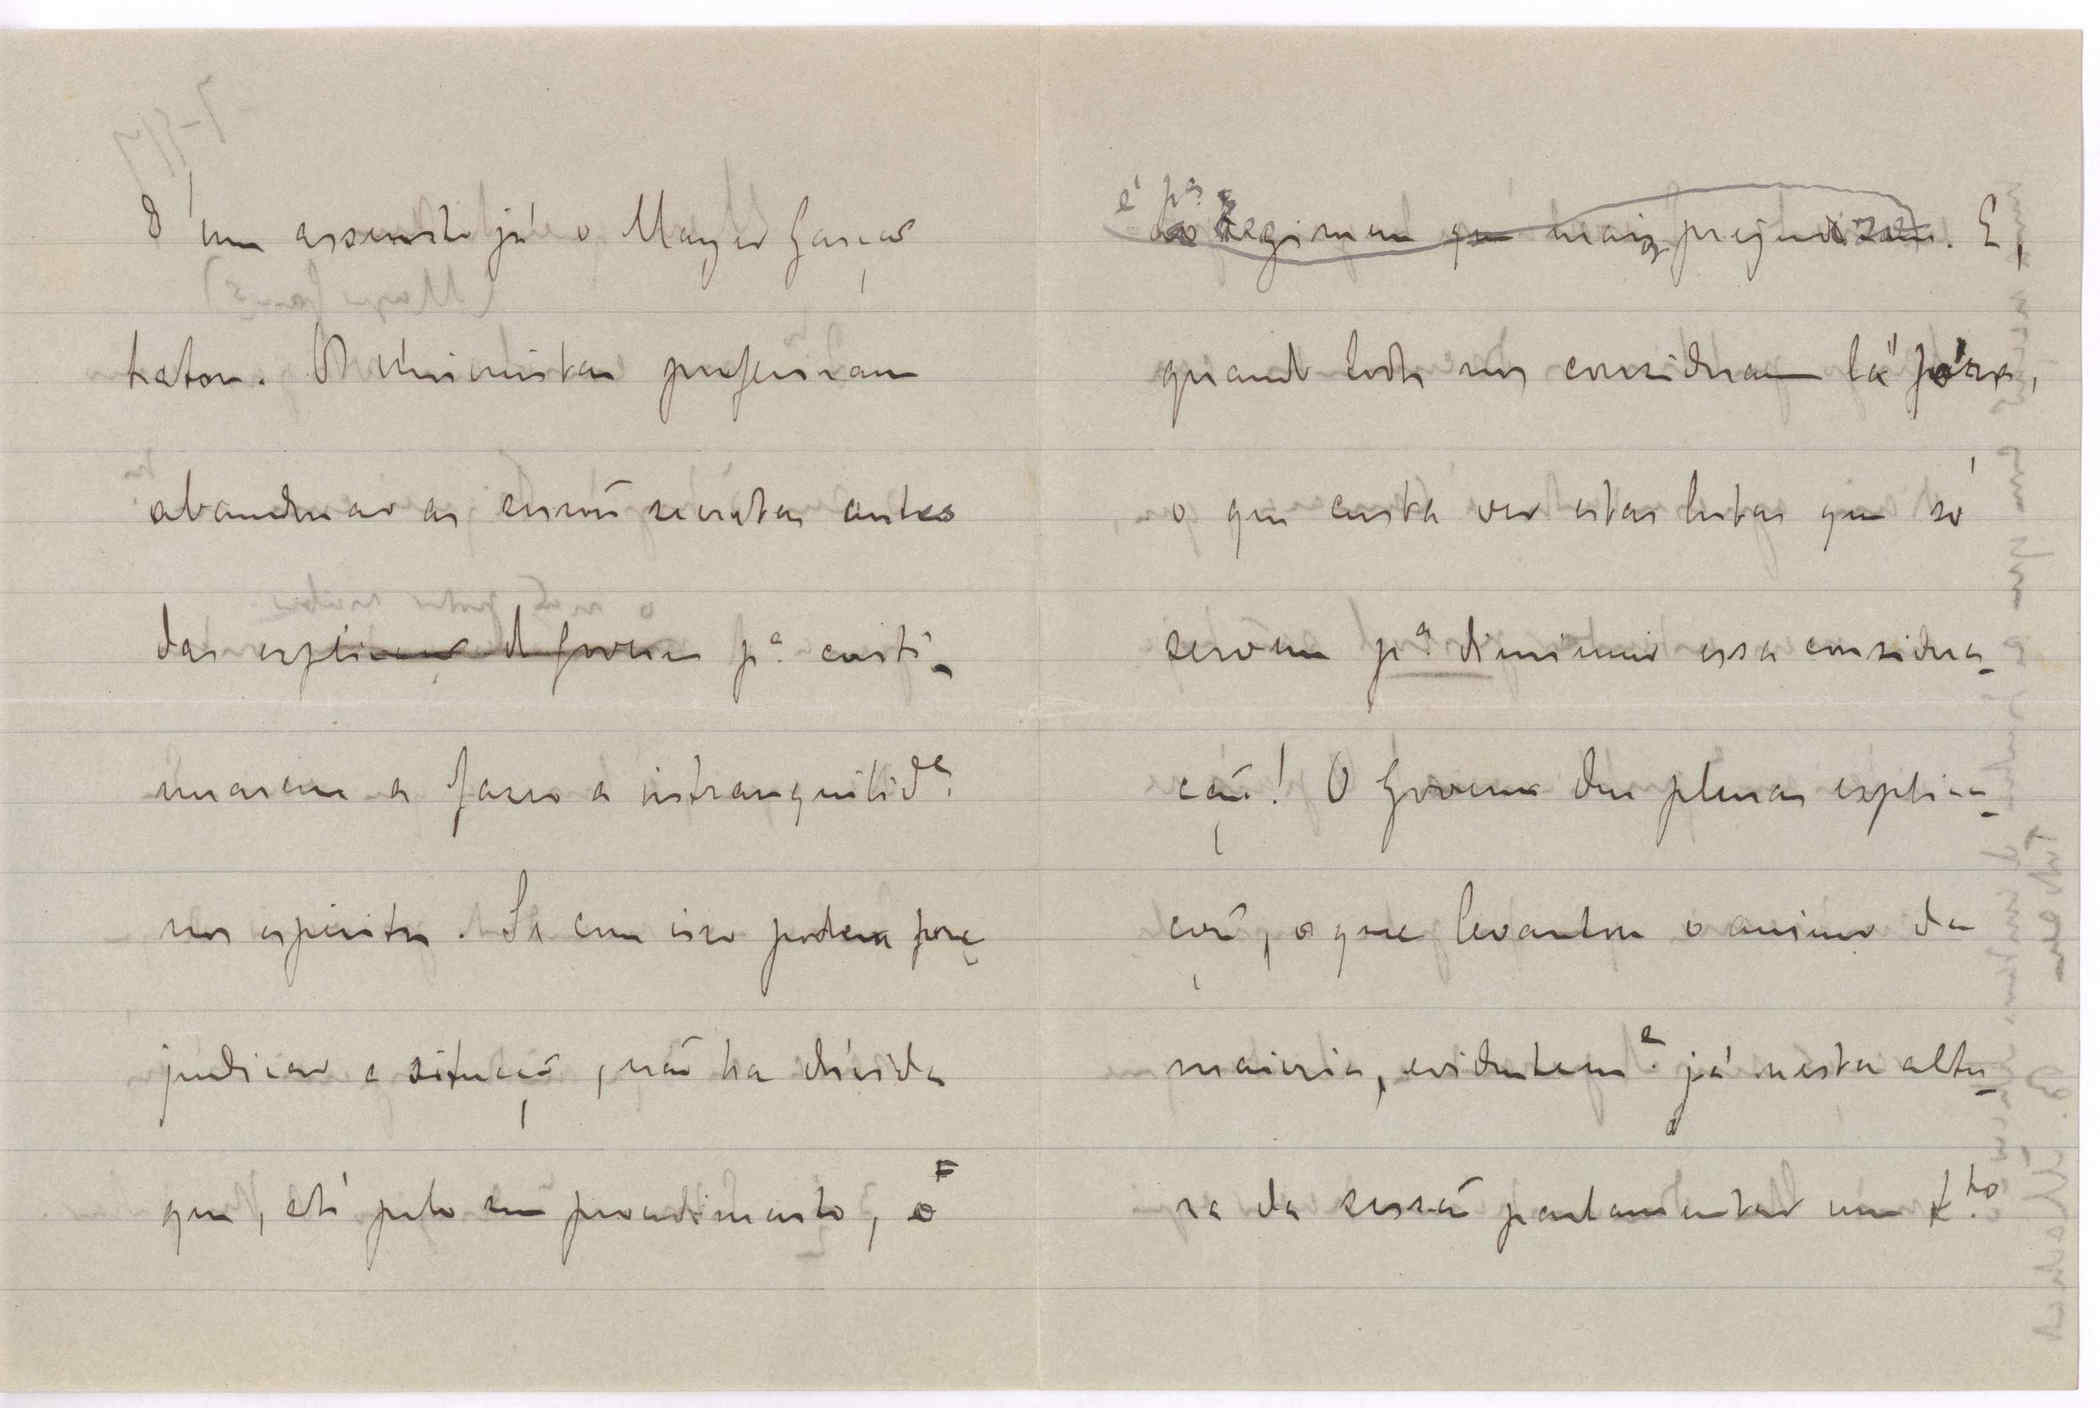 D'um assunto já o Mayer Garção
tratou. Os unionistas preferiram
abandonar as sessões secretas antes
das explicações do Governo p.ª conti-
nuarem a fazer a intranquilid.e
nos espiritos. Se com isso podem pre-
judicar a situação, não ha duvida
que, até pelo seu procedimento, é
é p.ª
ao Regimen que mais prejudicam. E,
quando todos nos consideram lá fóra,
o que custa ver estas lutas que só
servem p.ª diminuir essa considera-
ção! O Governo deu plenas explica-
ções, o que levantou o animo da
maioria, evidentem.e já nesta altu-
ra da sessão parlamentar um t.to